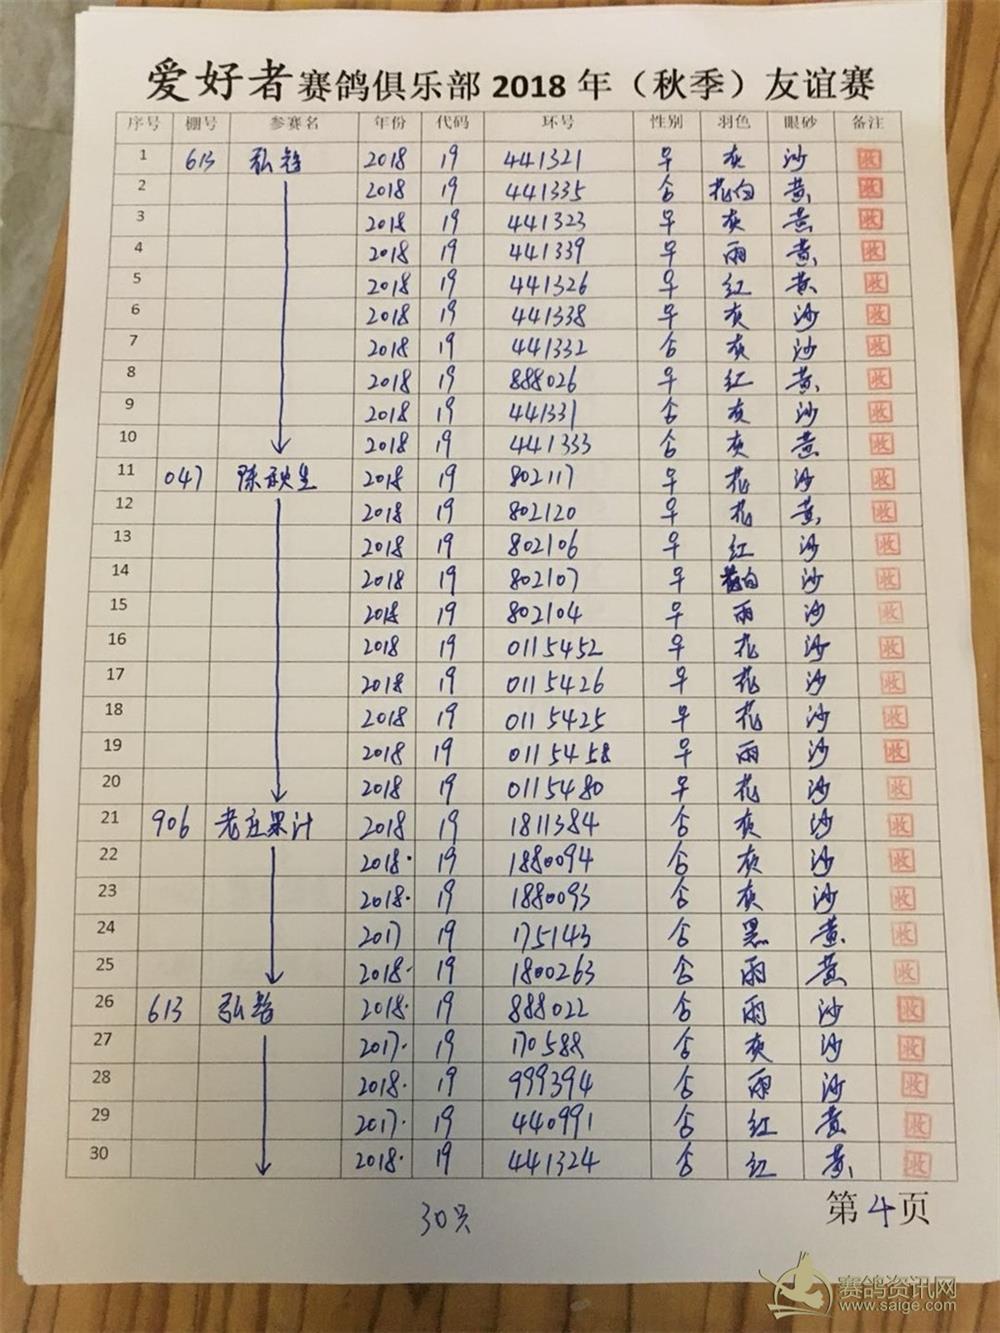 爱好者赛鸽俱乐部2018年（秋季）友谊赛
序号 棚号 参赛名 年份 代码 环号 性别 羽色 眼砂 备注
1 613 弘哲 2018 19 441321 早 灰 沙 收
2 2018 19 441335 合 花白 黄 收
3 2018 19 441323 早 灰 黄 收
4 2018 19 441339 早 雨 黄 收
5 2018 19 441326 早 红 黄 收
6 2018 19 441338 早 灰 沙 收
7 2018 19 441332 合 灰 沙 收
8 2018 19 888026 早 红 黄 收
9 2018 19 441331 合 灰 沙 收
10 2018 19 441333 合 灰 黄 收
11 047 陈秋生 2018 19 802117 早 花 沙 收
12 2018 19 802120 早 花 黄 收
13 2018 19 802106 早 红 沙 收
14 2018 19 802107 早 花白 沙 收
15 2018 19 802104 早 雨 沙 收
16 2018 19 0115452 早 花 沙 收
17 2018 19 0115426 早 花 沙 收
18 2018 19 0115425 早 花 沙 收
19 2018 19 0115458 早 雨 沙 收
20 2018 19 0115480 早 花 沙 收
21 906 老庄果汁 2018 19 1811384 合 灰 沙 收
22 2018· 19 1880094 合 灰 沙 收
23 2018· 19 1880093 合 灰 沙 收
24 2017 19 175143 合 黑 黄 收
25 2018· 19 1800263 合 雨 黄 收
26 613 弘哲 2018· 19 888022 合 雨 沙 收
27 2017· 19 170588 合 灰 沙 收
28 2018· 19 999394 合 雨 沙 收
29 2017· 19 440991 合 红 黄 收
30 2018· 19 441324 合 红 黄 收
30只
第4页
赛鸽资讯网
www.saige.com